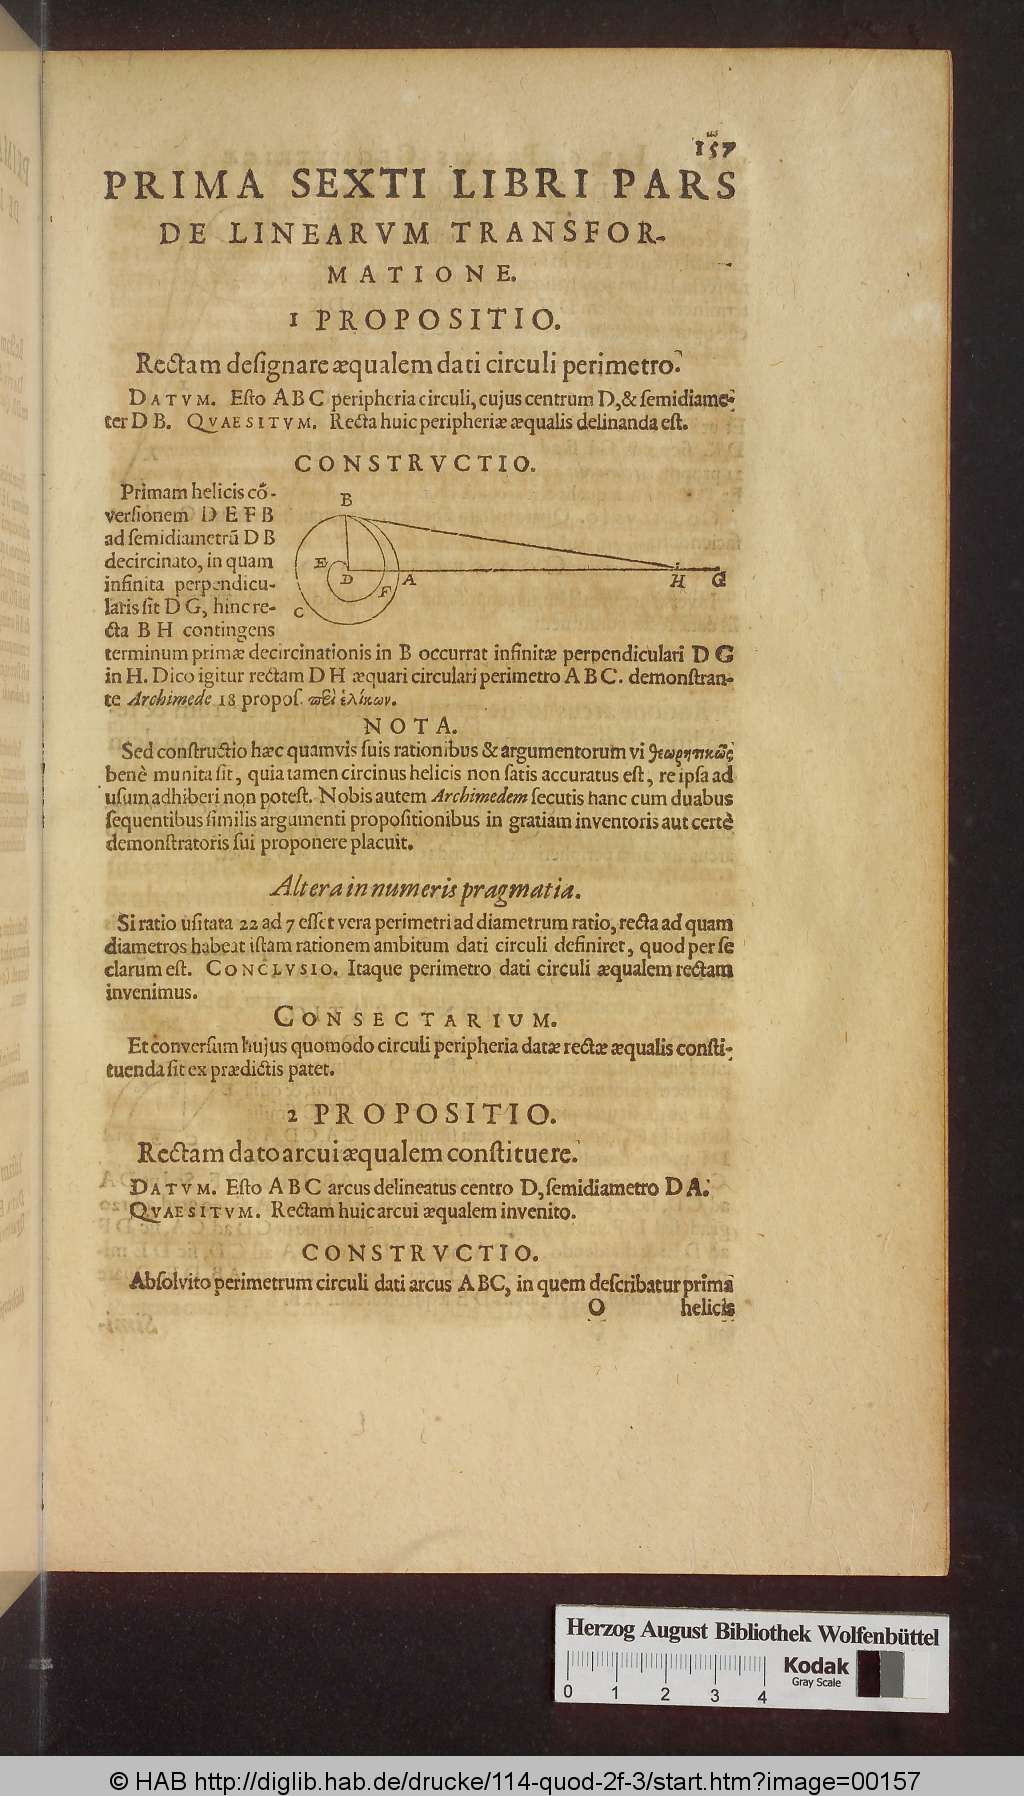 157
PRIMA SEXTI LIBRI PARS
DE LINEARVM TRANSFOR-
MATIONE.
1 PROPOSITIO.
Rectam deſignare æqualem dati circuli perimetro.
DATVM. Eſto ABC peripheria circuli, cujus centrum D, & ſemidiame-
ter DB. QVAESITVM. Recta huic peripheriæ æqualis delinanda eſt.
CONSTRVCTIO.
Primam helicis cõ-
verſionem DEFB
ad ſemidiametrũ DB
decircinato, in quam
infinita perpendicu-
laris ſit DG, hinc re-
cta BH contingens
B
E
D
A
F
C
H
G
terminum primæ decircinationis in B occurrat infinitæ perpendiculari DG
in H. Dico igitur rectam DH æquari circulari perimetro ABC. demonſtran-
te Archimede 18 propoſ. περὶ ἑλίκων.
NOTA.
Sed conſtructio hæc quamvis ſuis rationibus & argumentorum vi θεωρητικῶς
benè munita ſit, quia tamen circinus helicis non ſatis accuratus eſt, re ipſa ad
uſum adhiberi non poteſt. Nobis autem Archimedem ſecutis hanc cum duabus
ſequentibus ſimilis argumenti propoſitionibus in gratiam inventoris aut certè
demonſtratoris ſui proponere placuit.
Altera in numeris pragmatia.
Si ratio uſitata 22 ad 7 eſſet vera perimetri ad diametrum ratio, recta ad quam
diametros habeat iſtam rationem ambitum dati circuli definiret, quod per ſe
clarum eſt. CONCLVSIO. Itaque perimetro dati circuli æqualem rectam
invenimus.
CONSECTARIUM.
Et converſum hujus quomodo circuli peripheria datæ rectæ æqualis conſti-
tuenda ſit ex prædictis patet.
2 PROPOSITIO.
Rectam dato arcui æqualem conſtituere.
DATVM. Eſto ABC arcus delineatus centro D, ſemidiametro DA.
QVAESITVM. Rectam huic arcui æqualem invenito.
CONSTRVCTIO.
Abſolvito perimetrum circuli dati arcus ABC, in quem deſcribatur prima
O helicis
Herzog August Bibliothek Wolfenbüttel
0 1 2 3 4
Kodak
Gray Scale
© HAB http://diglib.hab.de/drucke/114-quod-2f-3/start.htm?image=00157